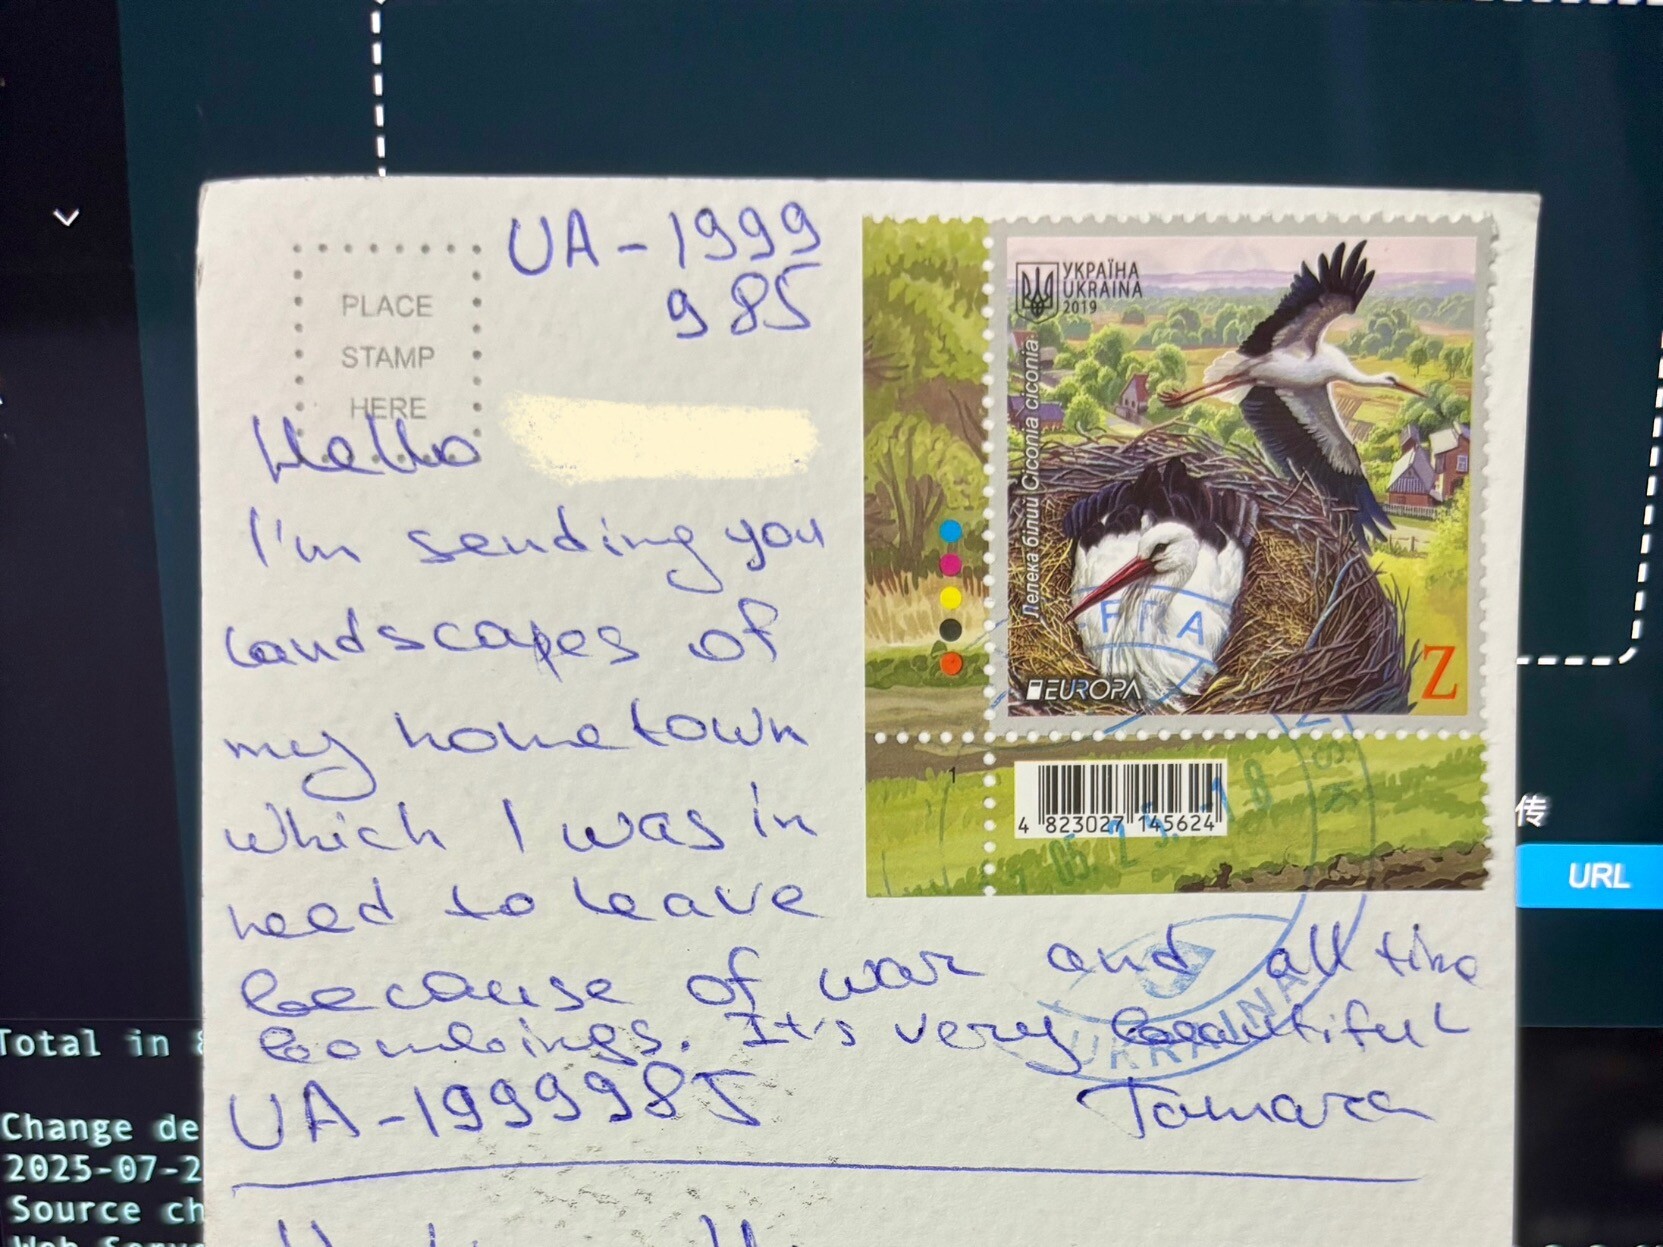 UA-1999
985
PLACE
STAMP
HERE
Hello
I'm sending you
landscapes of
my hometown
which I was in
need to leave
because of war and all this
bombings. It's very beautiful
UA-1999985 Tamara
УКРАЇНА
UKRAINA
2019
Лелека білий Ciconia ciconia
EUROPA
Z
1
4 823027 145624
UKRAINA
传
URL
Total in
Change de
2025-07-2
Source ch
Web Serv